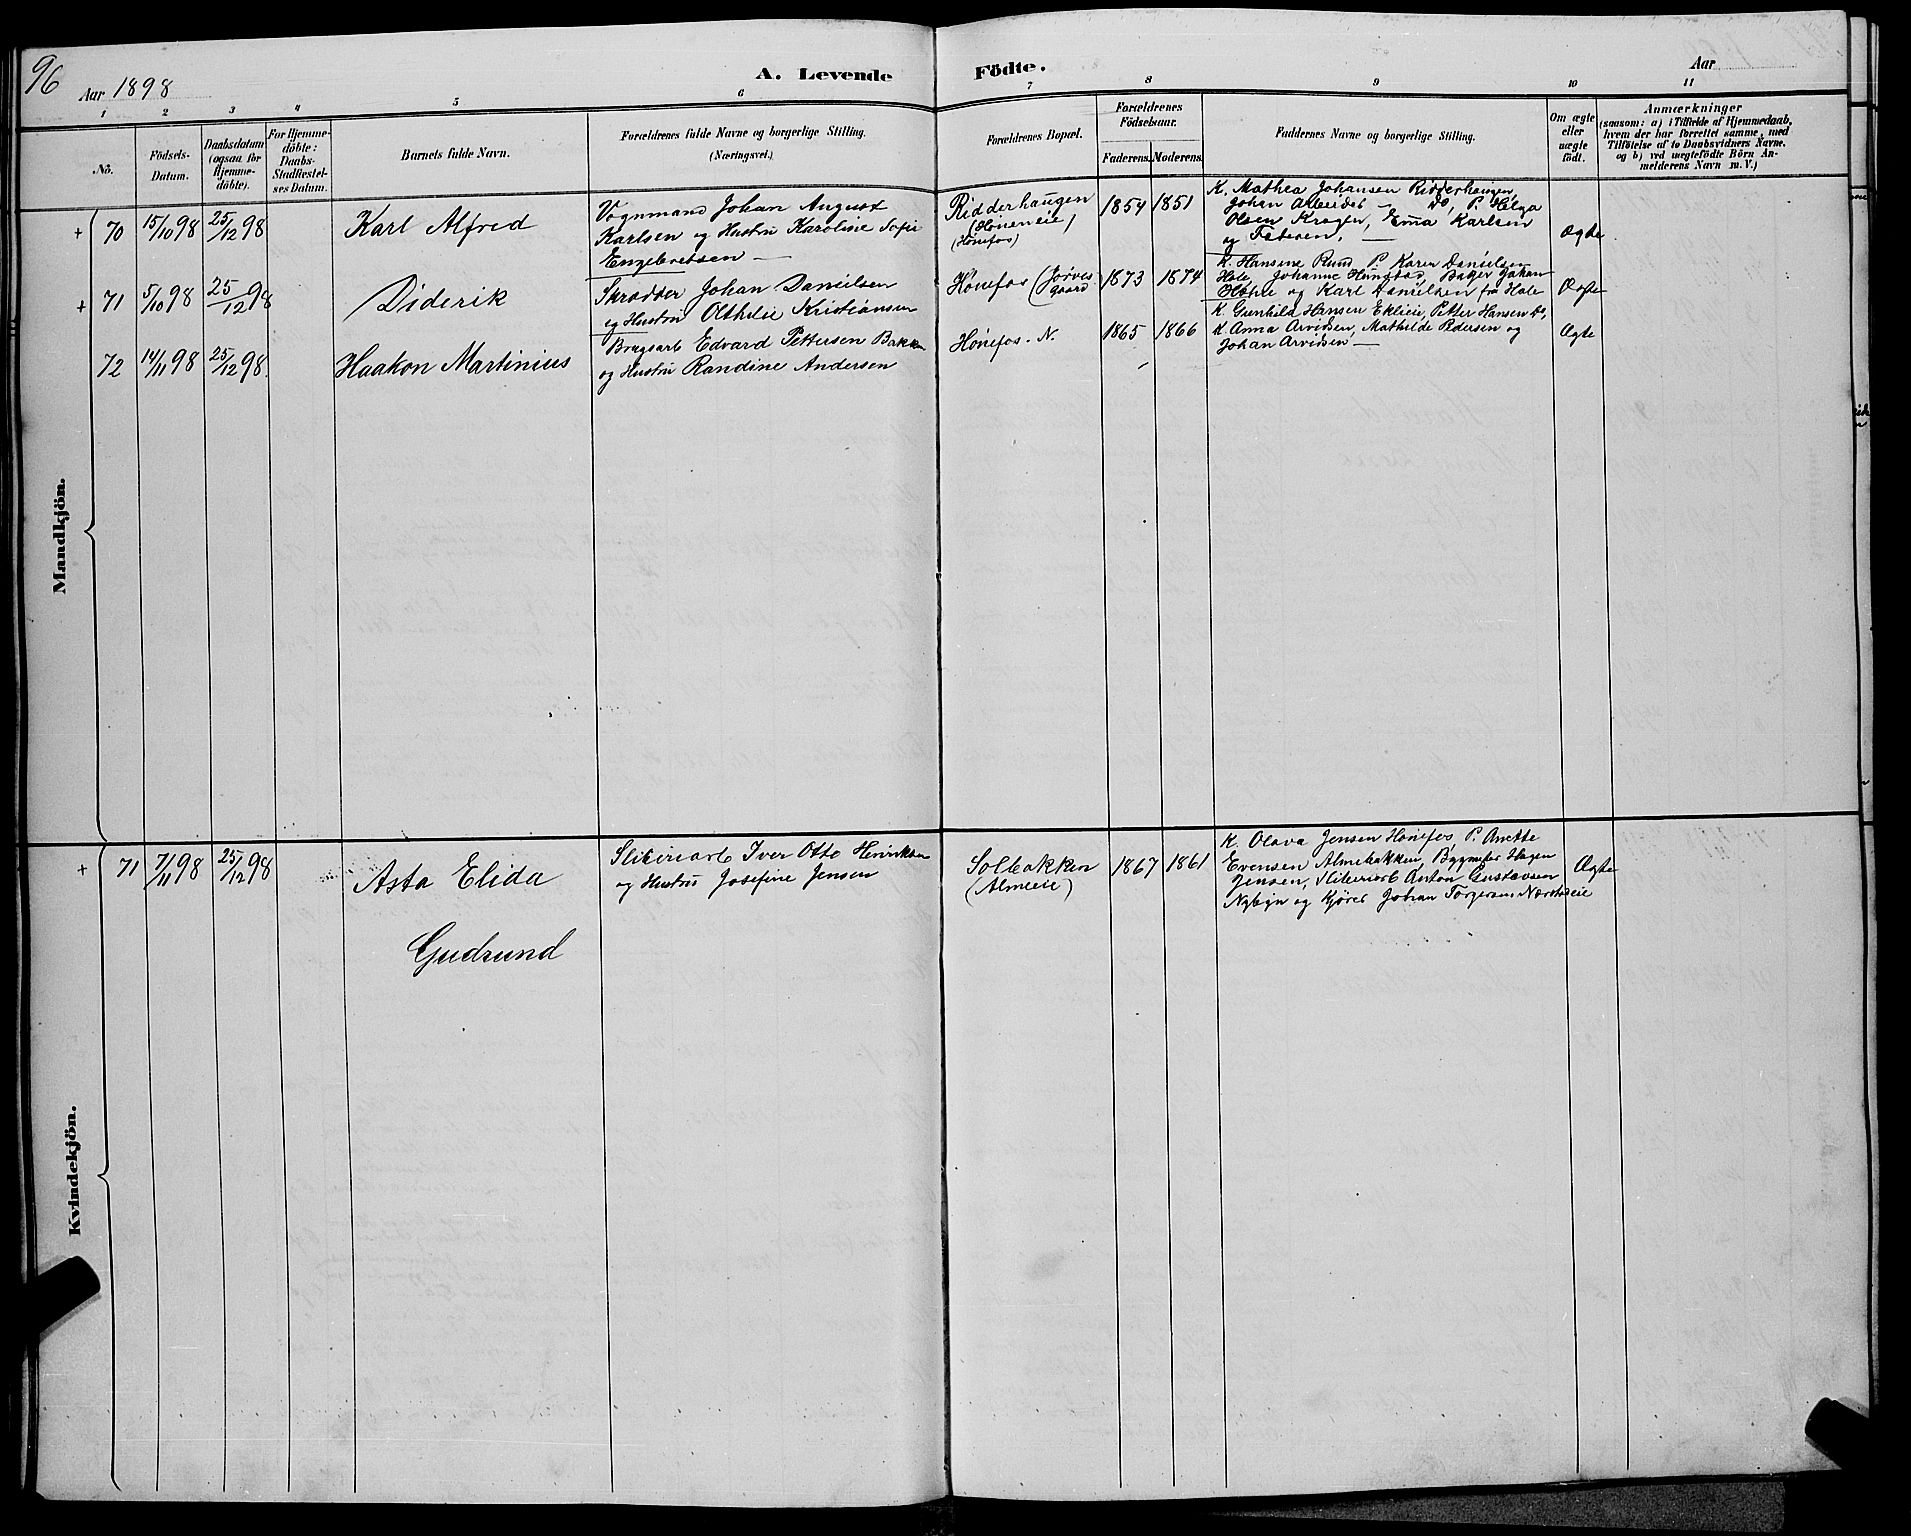 96
Aar 1898
A. Levende Födte.
Aar
1 2 3 4 5 6 7 8 9 10 11
No.
Födsels-
Datum.
Daabsdatum
(ogsaa for
Hjemme-
döbte).
For Hjemme-
döbte:
Daabs-
Stadfæstel-
ses Datum.
Barnets fulde Navn.
Forældrenes fulde Navne og borgerlige Stilling.
(Næringsvei.)
Forældrenes Bopæl.
Forældrenes
Födselsaar.
Faderens. Moderens.
Faddernes Navne og borgerlige Stilling.
Om ægte
eller
uægte
födt.
Anmærkninger
(saasom: a) i Tilfælde af Hjemmedaab,
hvem der har forrettet samme, med
Tilföielse af to Daabsvidners Navne,
og b) ved uægtefödte Börn An-
melderens Navn m. V.)
Mandkjön.
+ 70 15/10 98 25/12 98 Karl Alfred
Vognmand Johan August
Karlsen og Hustru Karoline Sofie
Engebretsen —
Ridderhaugen
(Høneneie)
(Hønefos)
1854 1851
K. Mathea Johansen Ridderhaugen,
Johan Arbeider — Do, P. Helga
Olsen Kragen, Ema Karlsen
og Faderen. —
Ægte
+ 71 5/10 98 25/12 98 Diderik
Skrædder Johan Danielsen
og Hustru Olthilie Kristiansen
Hønefos (Jørves
gaard
1873 1874
K. Hansine Rund P. Karen Danielsen
Hole, Johanne Hungstad, Bager Johan
og Karl Danielsen fra Hole
Ægte
72 14/11 98 25/12 98. Haakon Martinius
Brugsarb Edvard Pettersen Bakke
og Hustru Randine Andersen
Hønefos. N.
1865 1866
K. Gunhild Hansen Eklieie, Petter Hansen Do,
K Anna Arvidsen, Mathilde Pedersen og
Johan Arvidsen —
Ægte
Kvindekjön.
+ 71 7/11 98 25/12 98 Asta Elida
Gudrund
Sliberiarb Iver Otto Henriksen
og Hustru Josefine Jensen
Solbakken
(Almeie)
1867 1861
K. Olava Jensen Hønefos P. Anette
Evensen Almebakken, Bygmester Hagen
Jensen, Sliberiarb Anton Gustavsen
Nybyn og Kjører Johan Torgersen
Ægte